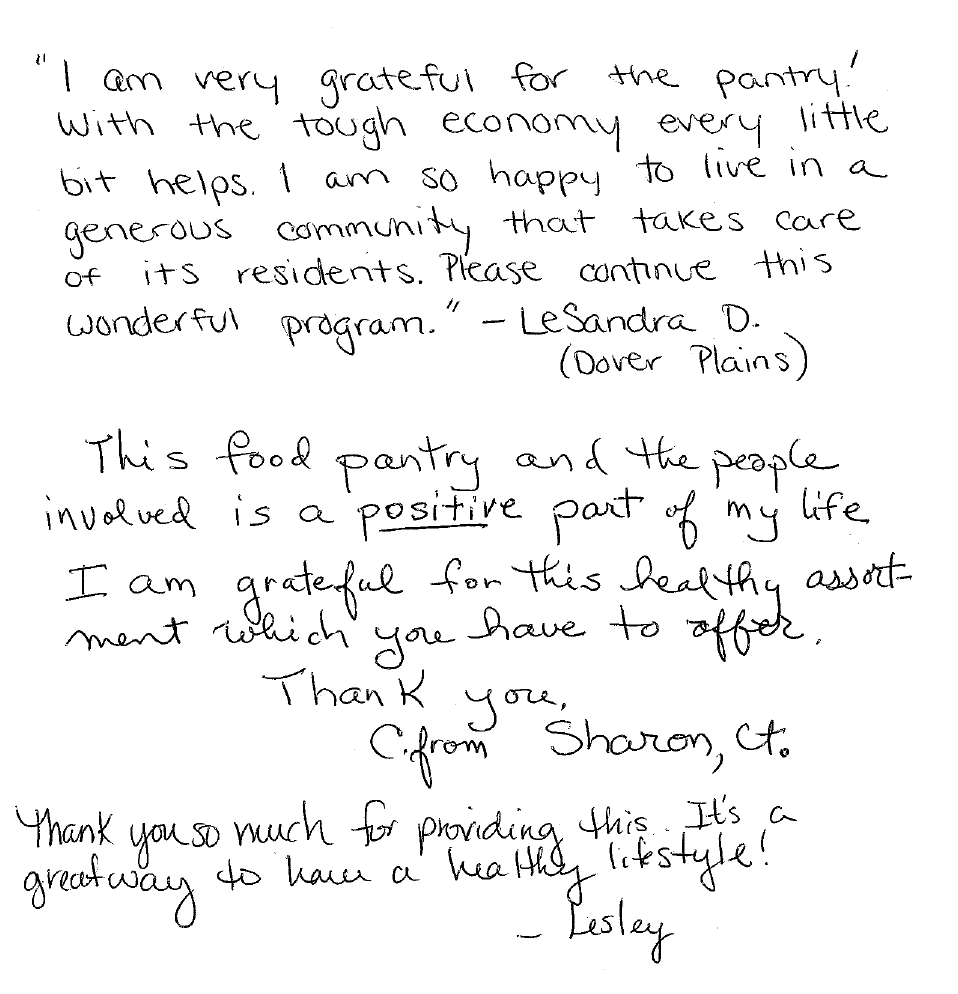 "I am very grateful for the pantry!
With the tough economy every little
bit helps. I am so happy to live in a
generous community that takes care
of its residents. Please continue this
wonderful program." – LeSandra D.
(Dover Plains)
This food pantry and the people
involved is a positive part of my life
I am grateful for this healthy assort-
ment which you have to offer.
Thank you,
C. from Sharon, Ct.
Thank you so much for providing this. It's a
great way to have a healthy lifestyle!
– Lesley